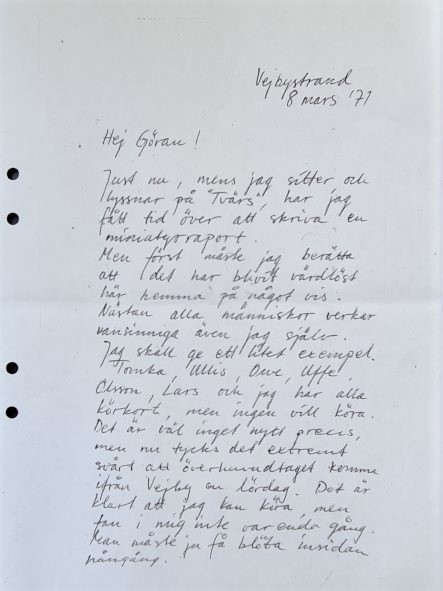 Vejbystrand
8 mars '71
Hej Göran!
Just nu, mens jag sitter och
lyssnar på "Tvärs", har jag
fått tid över att skriva en
miniatyrraport.
Men först måste jag berätta
att det har blivit värdlöst
här hemma på något vis.
Nästan alla människor verkar
vansinniga även jag själv.
Jag skall ge ett litet exempel.
Tomka, Ullis, Owe, Uffe,
Olsson, Lars och jag har alla
körkort, men ingen vill köra.
Det är väl inget nytt precis,
men nu tycks det extremt
svårt att överhuvudtaget komma
ifrån Vejby en lördag. Det är
klart att jag kan köra, men
fan i mig inte varenda gång.
Man måste ju få blöta insidan
nångång.